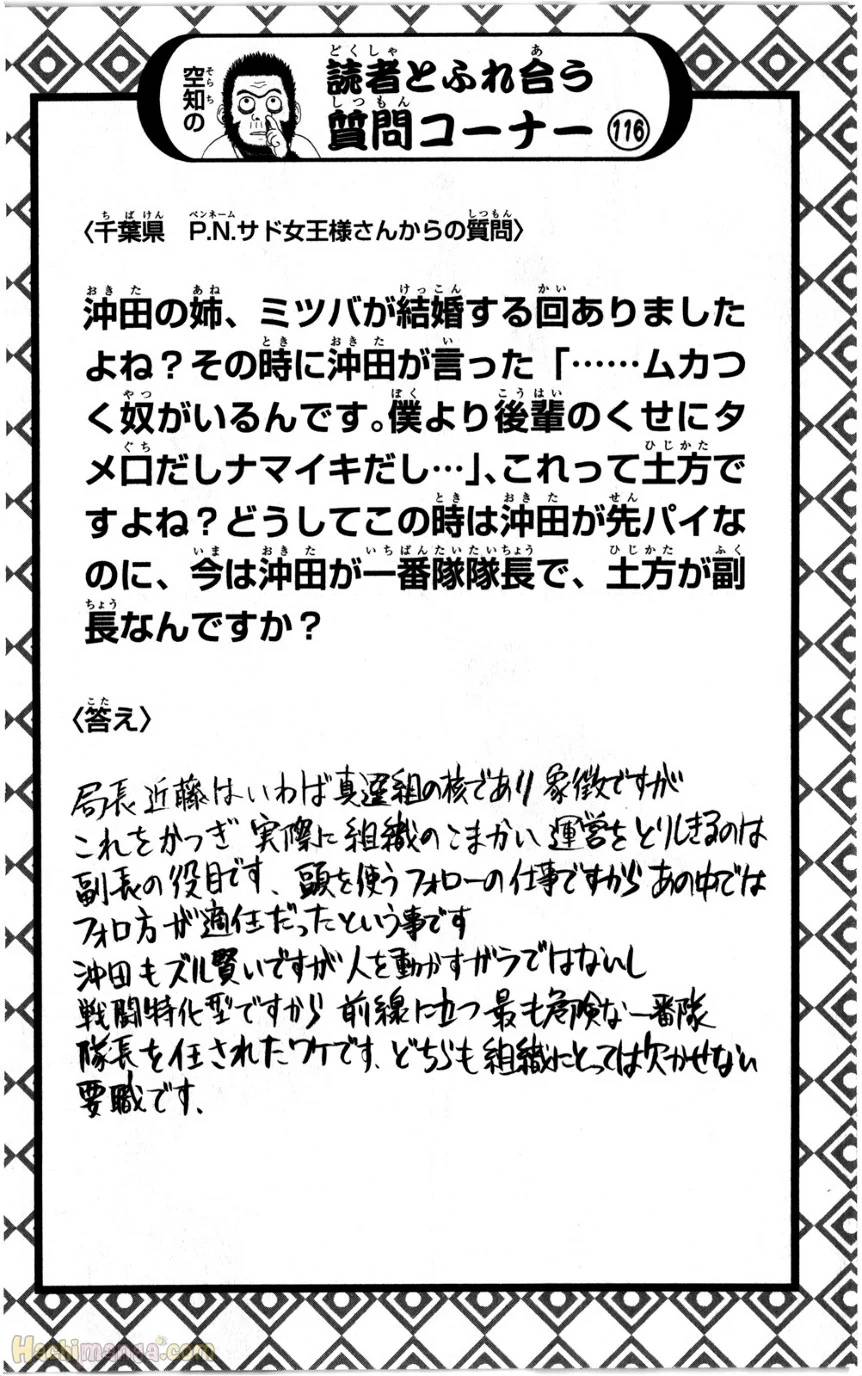 空知の
読者とふれ合う
質問コーナー 116
〈千葉県 P.N.サド女王様さんからの質問〉
沖田の姉、ミツバが結婚する回ありました
よね？その時に沖田が言った「……ムカつ
く奴がいるんです。僕より後輩のくせにタ
メ口だしナマイキだし…」、これって土方で
すよね？どうしてこの時は沖田が先パイな
のに、今は沖田が一番隊隊長で、土方が副
長なんですか？
〈答え〉
局長近藤はいわば真選組の核であり象徴ですが
これをかつぎ 実際に組織のこまかい運営をとりしきるのは
副長の役目です、頭を使うフォローの仕事ですから あの中では
フォロ方が適任だったという事です
沖田もズル賢いですが人を動かすガラではないし
戦闘特化型ですから 前線に立つ最も危険な一番隊
隊長を任されたワケです、どちらも組織にとっては欠かせない
要職です、
Hachimanga.com